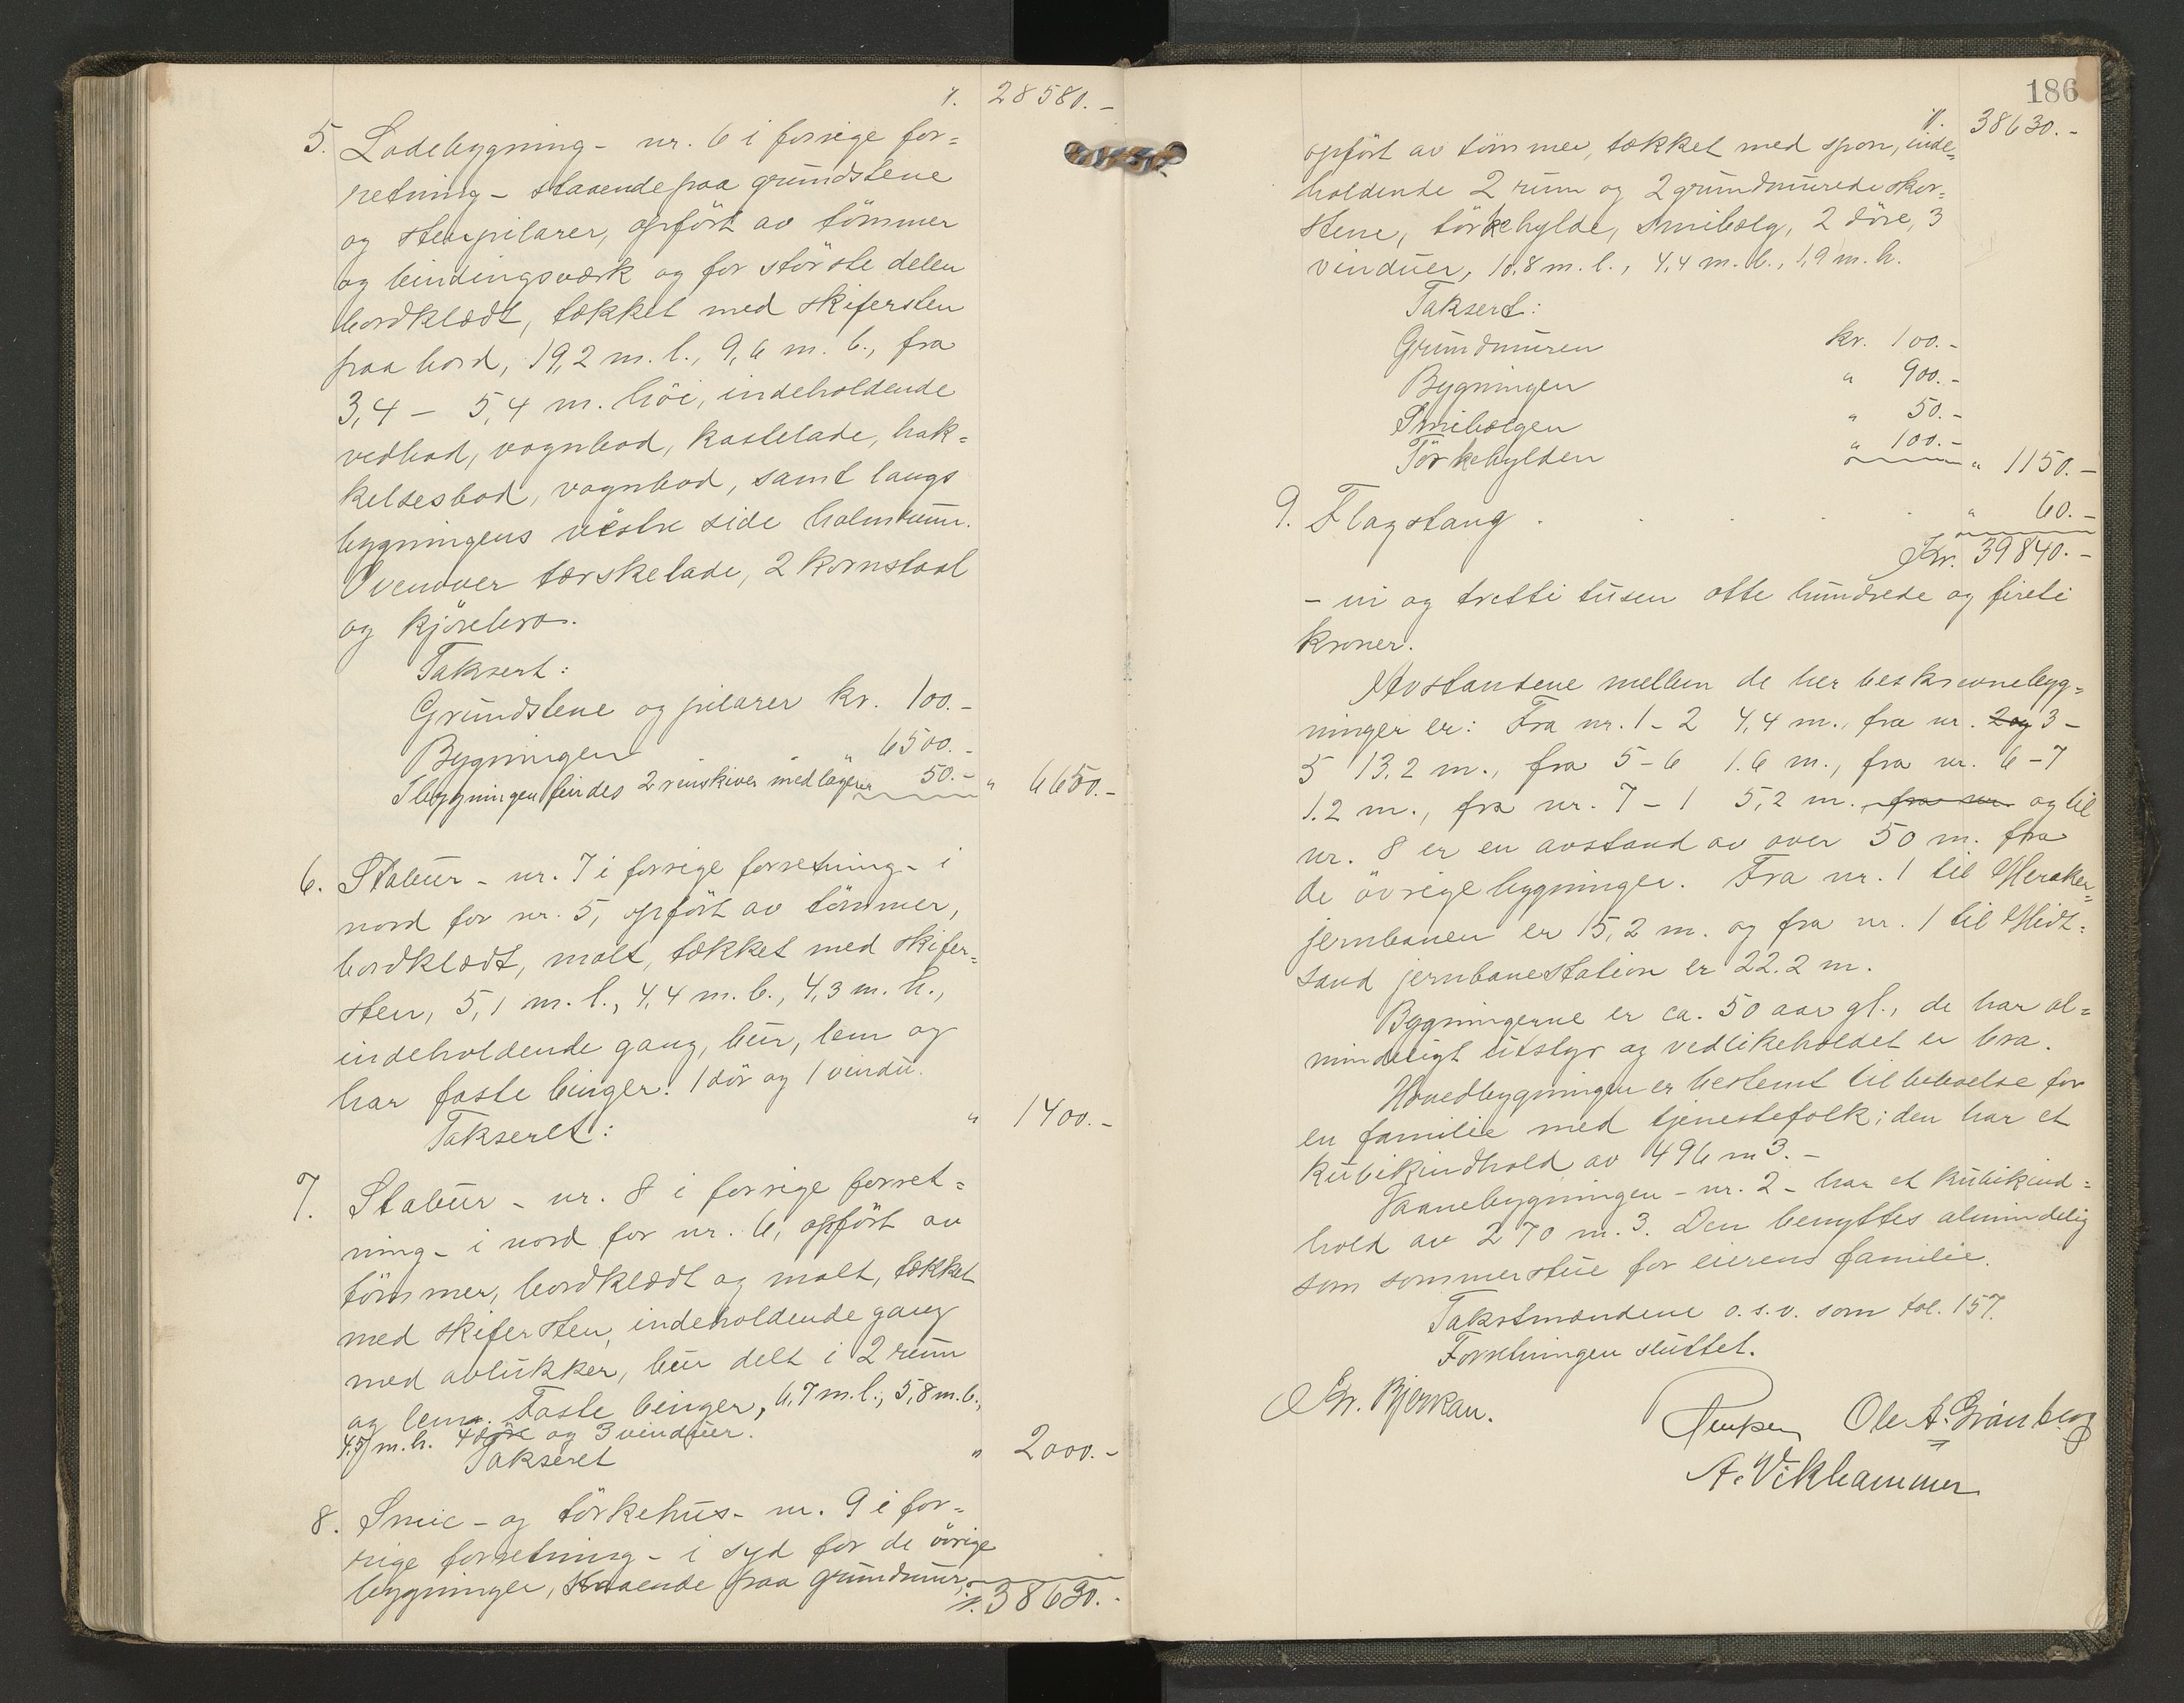 %. 28580.-
5. Ladebygning - nr. 6 i forrige for=
retning - staaende paa grundstene
og stenpilarer, opført av tømmer
og bindingsværk og for største delen
bordklædt, tækket med skifersten
paa bord, 19,2 m. l., 9,6 m. b., fra
3,4 - 5,4 m. høi, indeholdende
vedbod, vognbod, kastelade, hak=
kelsesbod, vognbod, samt langs
bygningens vestre side halmrum.
Ovenover tærskelade, 2 kornstaal
og kjørebro.
Taksert:
Grundstene og pilarer kr. 100.-
Bygningen " 6500.-
I bygningen findes 2 remskiver med lagerer 50.- " 6650.-
6. Stabur - nr. 7 i forrige forretning - i
nord for nr. 5, opført av tømmer,
bordklædt, malt, tækket med skifer=
sten, 5,1 m. l., 4,4 m. b., 4,3 m. h.,
indeholdende gang, bur, lem og
har faste binger. 1 dør og 1 vindu.
Takseret: " 1400.-
7. Stabur - nr. 8 i forrige forret=
ning - i nord for nr. 6, opført av
tømmer, bordklædt og malt, tækket
med skifersten, indeholdende gang
med avlukker, bur delt i 2 rum
og lem. Faste binger, 6,7 m. l., 5,8 m. b.,
4,5 m. h. 4 døre og 3 vinduer.
Takseret " 2000.-
8. Smie - og tørkehus - nr. 9 i for=
rige forretning - i syd for de øvrige
bygninger, staaende paa grundmur,
%. 38630.-
186
%. 38630.-
opført av tømmer, tækket med spon, inde=
holdende 2 rum og 2 grundmurede skor=
stene, tørkehylde, smibelg, 2 døre, 3
vinduer, 10,8 m. l., 4,4 m. b., 1,9 m. h.
Taksert:
Grundmuren kr. 100.-
Bygningen " 900.-
Smibælgen " 50.-
Tørkehylden " 100.- " 1150.-
9. Flagstang . . . . " 60.-
Kr. 39840.-
- ni og tretti tusen otte hundrede og fireti
kroner.
Avstandene mellem de her beskrevne byg=
ninger er: Fra nr. 1 - 2 4,4 m., fra nr. 2 og 3 -
5 13,2 m., fra 5 - 6 1.6 m., fra nr. 6 - 7
1.2 m., fra nr. 7 - 1 5,2 m. fra nr. og til
nr. 8 er en avstand av over 50 m. fra
de øvrige bygninger. Fra nr. 1 til Meraker=
jernbanen er 15,2 m. og fra nr. 1 til Midt=
sand jernbanestation er 22.2 m.
Bygningerne er ca. 50 aar gl., de har al=
mindeligt utstyr og vedlikeholdet er bra.
Hovedbygningen er bestemt til beboelse for
en familie med tjenestefolk; den har et
kubikindhold av 496 m3. -
Vaanebygningen - nr. 2 - har et kubikind=
hold av 270 m. 3. Den benyttes almindelig
som sommerstue for eierens familie.
Takstmændene o. s. v. som fol. 157.
Forretningen sluttet.
Chr. Bjerkan. Ole A. Granberg
A. Vikhammer